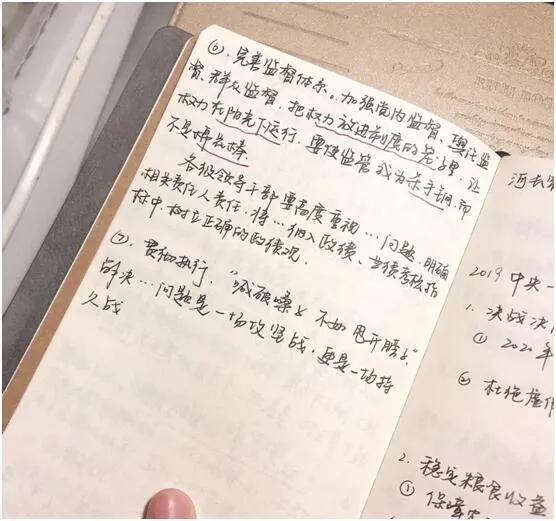 ⑥. 完善监督体系。加强党内监督、舆论监
督、群众监督，把权力放进制度的笼子里，让
权力在阳光下运行，要使监管成为杀手锏，而
不是棒棒棒。
各级领导干部要高度重视…问题，明确
相关责任人责任，将…纳入政绩、业绩考核指
标中，树立正确的政绩观。
⑦. 贯彻执行，“喊破嗓子不如甩开膀子”。
解决…问题是一场攻坚战，更是一场持
久战
河去
2019 中央一
1. 决战决
① 2020年
② 杜绝虚
2. 稳定粮食收益
① 保障